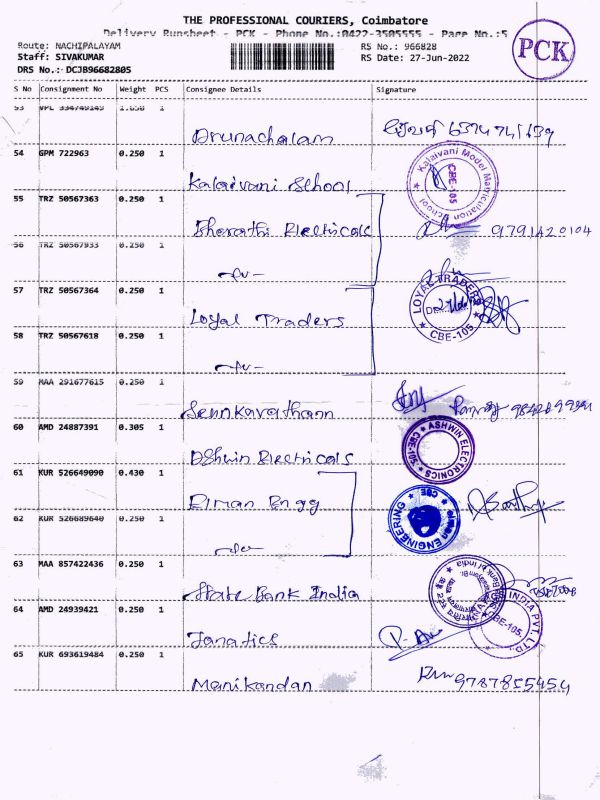 THE PROFESSIONAL COURIERS, Coimbatore
Delivery Runsheet - PCK - Phone No.:0422-3505555 - Page No.:5
PCK
Route: NACHIPALAYAM RS No.: 966828
Staff: SIVAKUMAR RS Date: 27-Jun-2022
DRS No.: DCJB96682805
S No Consignment No Weight PCS Consignee Details Signature
53 VPL 334749149 1.650 1
Arunachalam
54 GPM 722963 0.250 1
Kalaivani School
Kalaivani Model Matriculation School CBE-105
55 TRZ 50567363 0.250 1
Bharathi Electricals 9791420104
56 TRZ 50567933 0.250 1
57 TRZ 50567364 0.250 1
Loyal Traders
LOYAL TRADERS CBE-105
58 TRZ 50567618 0.250 1
59 MAA 291677615 0.250 1
60 AMD 24887391 0.305 1
Ashwin Electricals
ASHWIN ELECTRONICS CBE-105
61 KUR 526649090 0.430 1
Elman Engg
ENGINEERING CBE
62 KUR 526689640 0.250 1
63 MAA 857422436 0.250 1
State Bank India
Bank of India
64 AMD 24939421 0.250 1
Janatics
INDIA PVT. LTD. CBE-105.
65 KUR 693619484 0.250 1
Manikandan 9787855454